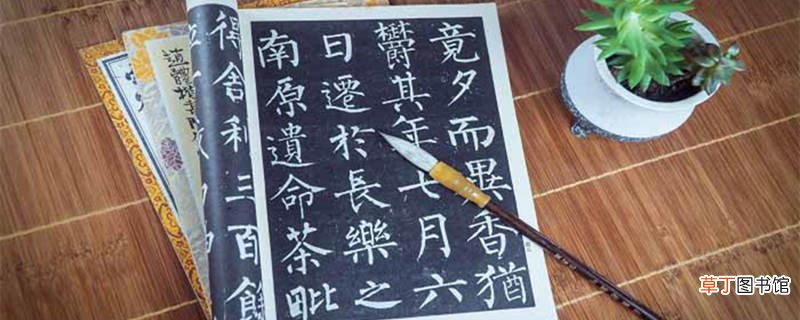 竟夕而異香猶
鬱其年七月六
日遷於長樂之
南原遺命茶毗
得舍利三百餘
草丁图书馆